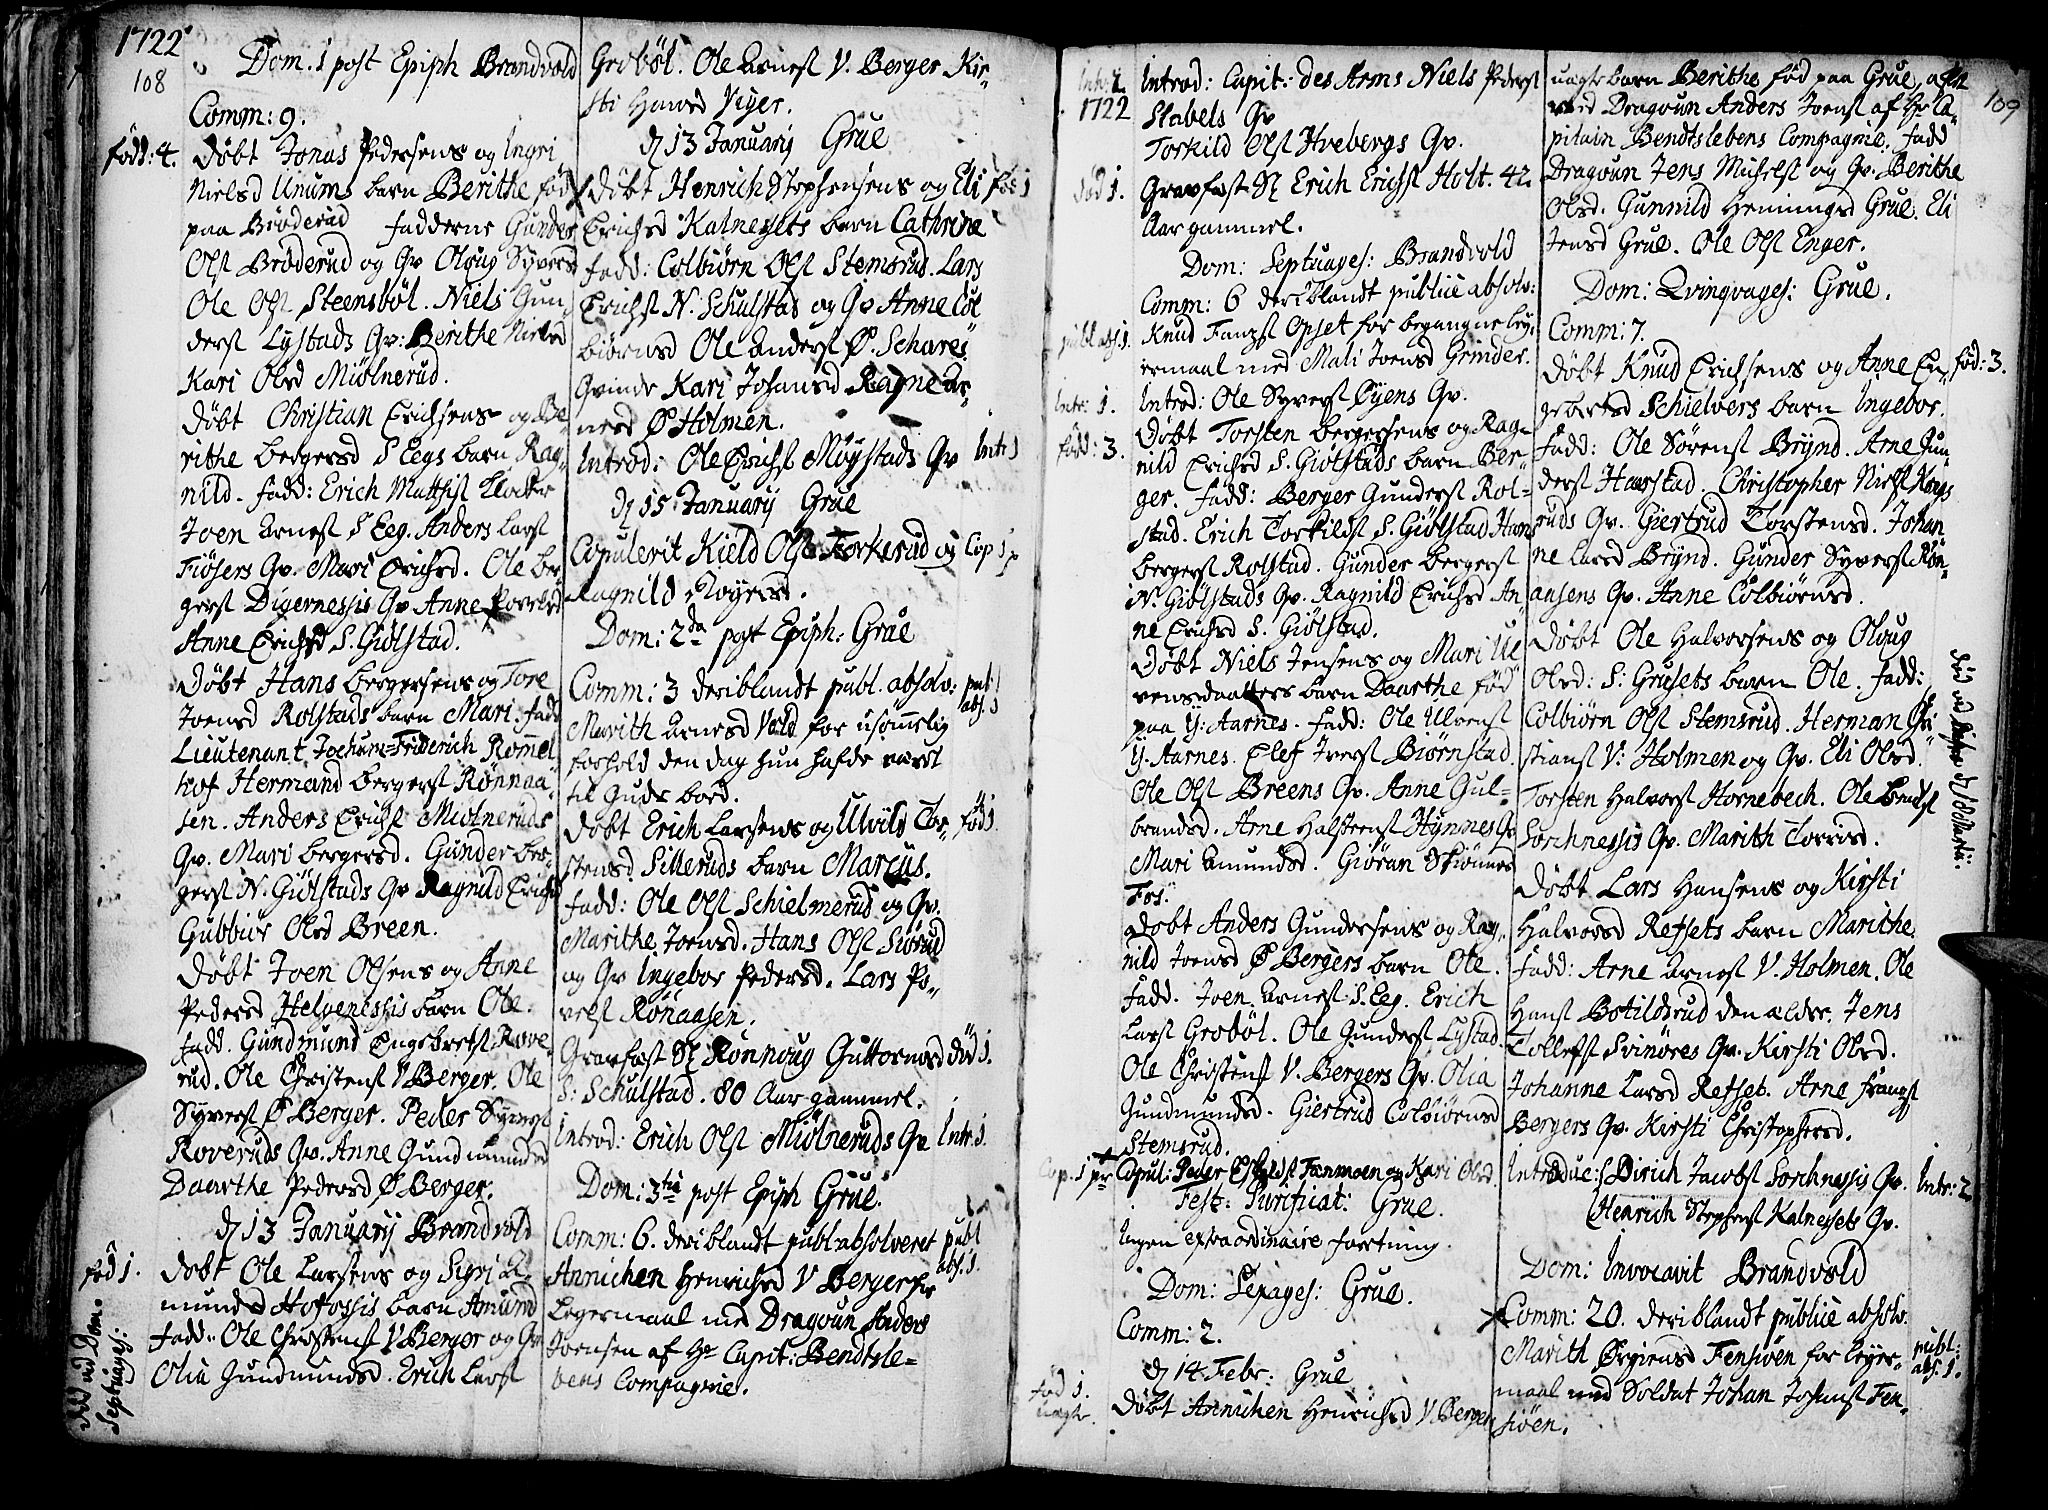 1722
108
Dom. 1 post Epiph Brandvold
Comm: 9.
född: 4.
Döbt Jonas Pedersens og Ingri
Nielsd Unums barn Berithe född
paa Bröderud fadderne Gunder
Olsl Bröderud og Qv Oloug Syversd
Ole Olsl Steensböl. Niels Gun
dersl Lystads Qv: Berithe Nielsd
Kari Olsd Miölnerud.
Döbt Christian Erichsens og Be
rithe bergersd S Eegs barn Rag
nild. fadd: Erich Mattisl Klocker
Joen Arnesl S Eeg. Anders Larsl
Fiösers Qv. Mari Erichsd. Ole ber
gersl Digernessis Qv Anne Povelsd
Anne Erichsd S. Giölstad.
Döbt Hans bergersens og Tore
Joensd Rolstads barn Mari. fadd
Lieutenant Jochum=Friderich Römmel
hof Hermand bergersl Rönnaa
sen. Anders Erichsl Miölneruds
Qv. Mari bergersd. Gunder ber
gersl N. Giölstads Qv Ragnild Erichsd
Gubbiör Olsd Breen.
Döbt Joen Olsens og Anne
Pedersd Helgenessis barn Ole.
fadd. Gundmund Engebretsl Rove
rud. Ole Christensl V Berger. Ole
Syversl Ø Berger. Peder Syversl
Roveruds Qv. Anne Gundmundsd
Daarthe Pedersd Ø Berger.
d 13 Januarij Brandvold
föd 1.
Döbt Ole Larsens og Sigri A
mundsd Hofossis barn Amund
fadd. Ole Christensl V Berger og Qv
Olia Gundmundsd. Erich Larsl
död ad Dom.
Septuages:
Groböl. Ole Arnesl V. Berger Kir
sti Hansd Viger.
d 13 Januarij Grue
Döbt Henrich Stephensens og Eli
föd 1
Erichsd Kalnessets barn Cathrine
fadd: Colbiörn Olsl Stemsrud. Lars
Erichsl N. Schulstad og Qv Anne Col
biörnsd Ole Andersl Ø. Schares
Qvinde Kari Johansd Ragne Ar
nesd Ø Holmen.
Introd: Ole Erichsl Möystads Qv
Intr 1
d 15 Januarij Grue
Copulerit Kield Olsl Torkerud og
Cop 1 p
Ragnild Rogersd.
Dom: 2da post Epiph: Grue
Comm: 3 deriblandt publ. absolv:
publ
abs. 1
Marith Arnesd Vold for usömmelig
forhold den dag hun hafde været
til Guds bord.
Döbt Erich Larsens og Ulvild Tor
föd 1.
stensd Silleruds barn Marcus.
fadd: Ole Olsl Schielmerud og Qv.
Marithe Joensd. Hans Olsl Siörud
og Qv Ingebor Pedersd. Lars Po
velsl Rönaasen.
Gravfæst Sl Rönnoug Guttormsd
död 1.
S: Schulstad. 80 Aar gammel.
Introd: Erich Olsl Miölneruds Qv
Intr. 1.
Dom: 3tia post Epiph Grue.
Comm: 6. deriblandt publ absolveret
publ
abs. 1.
Annichen Henrichsd V Berger for
Legermaal med Dragoun Anders
Joensen af Hr Capit: Bendtsle
bens Compagnie.
109
1722
Intr. 2.
Introd: Capit: des Arms Niels Pedersl
Stabels Qv
Torkild Olsl Hvebergs Qv.
död 1.
Gravfæst Sl Erich Erichsl Holt. 42
Aar gammel.
Dom: Septuages: Brandvold
Comm: 6 deriblandt publicè absolv:
publ abs. 1.
Knud Franzsl Opset for begangne ley
ermaal med Mali Joensd Grinder.
Intr. 1.
Introd: Ole Syversl Öyens Qv.
född: 3.
Döbt Torsten bergersens og Rag
nild Erichsd S. Giölstads barn Ber
ger. fadd: Berger Gundersl Rol
stad. Erich Torkildsl S. Giölstad Hans
bergersl Rolstad. Gunder bergersl
N. Giölstads Qv. Ragnild Erichsd An
ne Erichsd S. Giölstad.
Döbt Niels Jensens og Mari Ul
vensdaatters barn Daarthe föd
paa Y: Aarnes. fadd: Ole Ulvensl
Y. Aarnes. Elef Iversl Biörnstad.
Ole Olsl Breens Qv. Anne Gul
brandsd. Arne Halstensl Hynnes Qv
Mari Amundsd. Giöran
Fos.
Döbt Anders Gundersens og Rag
nild Joensd Ø Bergers barn Ole.
Fadd. Joen Arnesl S. Eeg. Erich
Larsl Groböl. Ole Gundersl Lystad.
Ole Christensl V. Bergers Qv. Olia
Gundmundsd. Giertrud Colbiörnsd
Stemsrud.
Cop. 1 pr
Copul: Peder Eskildsl Fenmoen og Kari Olsd.
Fest: Purificat: Grue.
Ingen extraordinaire forretning.
Dom: Sexages: Grue.
Comm: 2.
d 14 Febr: Grue
föd 1.
uægte.
Döbt Annichen Henrichsd V. Bergers
uægte barn Berithe föd paa Grue, aflet
ved Dragoun Anders Joensl af Hr Ca
pitain Bendtslebens Compagnie. fadd
Dragoun Jens Michelsl og Qv. Berithe
Olsd. Gunnild Hemingsd Grue. Eli
Jensd Grue. Ole Olsl Enger.
Dom: Qvinqvages: Grue.
Comm: 7.
Döbt Knud Erichsens og Anne En
föd: 3.
gebretsd Schielvers barn Ingebor.
fadd: Ole Sörensl Brynd. Arne Gun
dersl Haarstad. Christopher Nielsl Kongs
ruds Qv. Giertrud Torstensd. Johan
ne Larsd Brynd. Gunder Syversl Rön
aasens Qv. Anne Colbiörnsd.
Döbt Ole Halvorsens og Oloug
Olsd: S: Grusets barn Ole. fadd:
Colbiörn Olsl Stemsrud. Herman Chri
stiansl V: Holmen og Qv. Eli Olsd.
Torsten Halvorsl Hornebech. Ole bendsl
Sorchnessis Qv. Marith Torersd.
Döbt Lars Hansens og Kirsti
Halvorsd Refsets barn Marithe
fadd: Arne Arnesl V. Holmen. Ole
Hansl Botildsrud den ælder. Jens
Tollefsl Svinöres Qv. Kirsti Olsd.
Johanne Larsd Refset. Arne franzsl
Bergers Qv. Kirsti Christophersd.
Introduc: Dirich Jacobsl Sorchnessis Qv.
Intr: 2
Henrich Stephensl Kalnessets Qv.
Dom: Invocavit Brandvold
Comm: 20. deriblandt publicè absolv.
publ:
abs. 1.
Marith Örgiensd Fensiöen for leger
maal med Soldat Johan Johansl Fen
siöen.